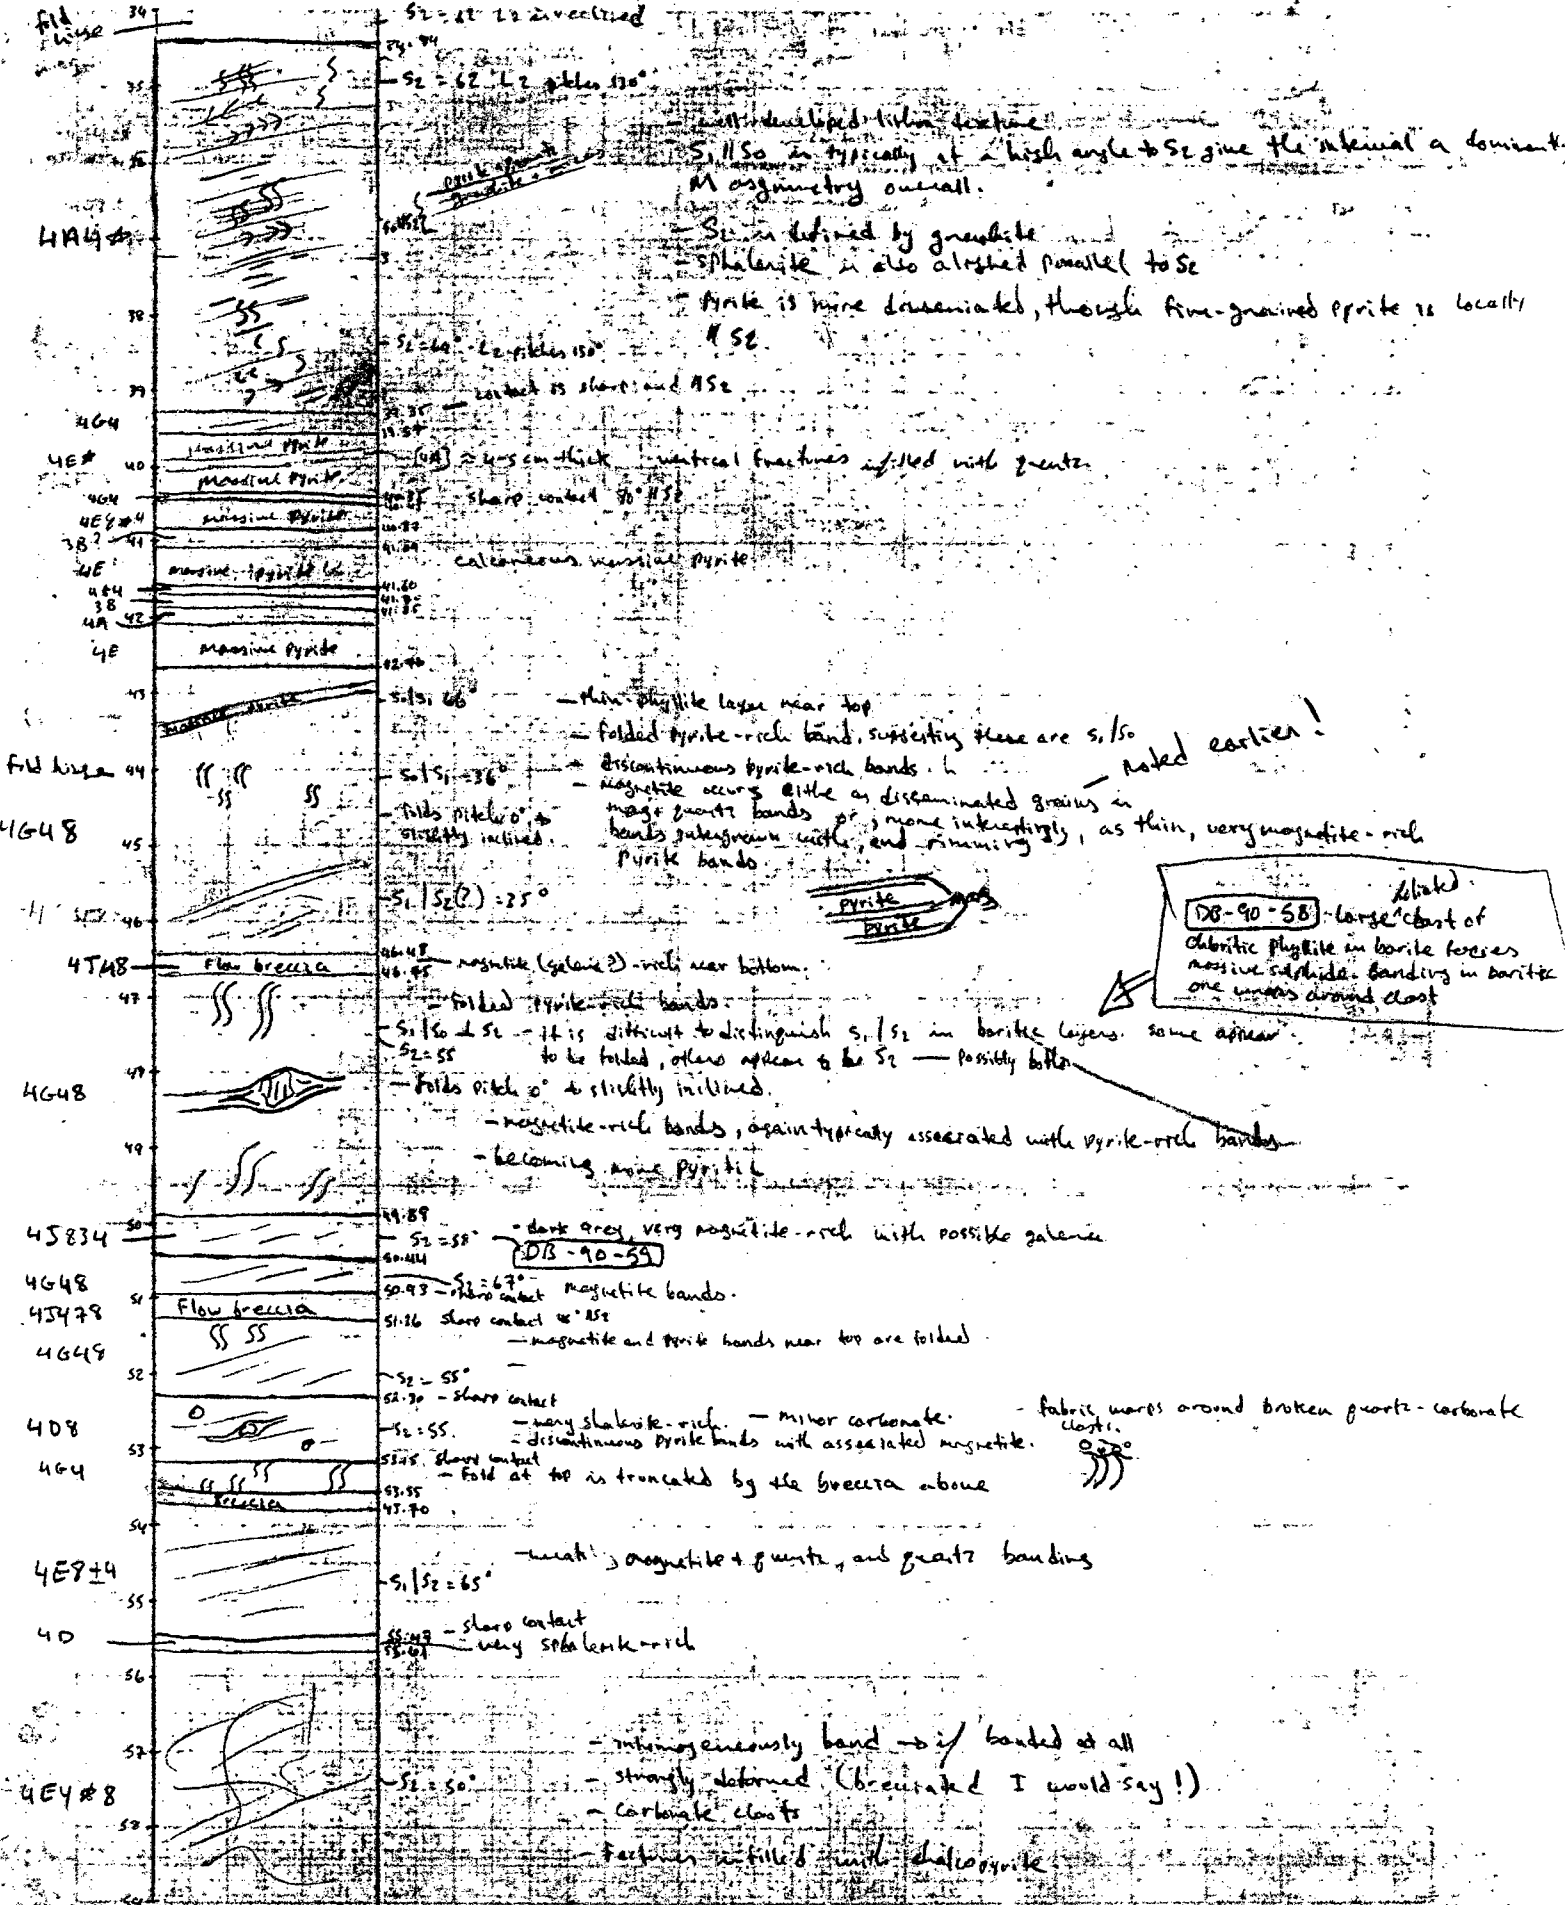 fold
34
34.94
35
S2 = 62 L2 pitches 130°
- well-developed lithon texture
S1 // S0 is typically at a high angle to S2 give the interval a dominant
M asymmetry overall.
4A4
- S2 is defined by graphite
- sphalerite is also aligned parallel to S2
- Pyrite is more dissemiated, though fine-grained pyrite is locally
// S2.
38
L2 pitches 150°
39
- contact is sharp and // S2
39.35
4G4
massive pyrite
4E
40
[4A] ≈ 4-5 cm thick - vertical fractures infilled with quartz
massive pyrite
4G4
- sharp contact 70° // S2
massive pyrite
3B?
41
calcareous massive pyrite
4E
massive pyrite
41.60
4G4
3B
41.85
4A
42
4E
massive pyrite
43
S0/S1 66°
- thin phyllite layer near top
massive pyrite
- folded pyrite-rich band, suggesting these are S1/S0
- noted earlier!
fold hinge
44
S0/S1 = 36°
discontinuous pyrite-rich bands.
- magnetite occurs eithe as disseminated grains in
- folds pitch 0° to
slightly inclined.
mag + quartz bands or, more interestingly, as thin, very magnetite-rich
4G48
45
bands intergrown with, and rimming
pyrite bands.
S1/S2(?) = 35°
pyrite
mag
pyrite
foliated.
DB-90-58 - large clast of
chloritic phyllite in barite facies
massive sulphide. Banding in baritic
one warps around clast
46
46.48
4J48
Flow breccia
- magnetite (galena?)-rich near bottom.
47
- Folded pyrite-rich bands.
S1/S0 & S2 - it is difficult to distinguish S1/S2 in baritic layers. some appear
S2 = 55
to be folded, others appear to be S2 — possibly both
4G48
- folds pitch 0° to slightly inclined.
- magnetite-rich bands, again typically associated with pyrite-rich bands
49
- becoming more pyritic
49.89
50
4J834
S2 = 58°
- dark grey, very magnetite-rich with possible galena
DB-90-59
50.44
4G48
S2 = 67°
50.93 - sharp contact
magnetite bands.
51
4J478
Flow breccia
51.26 sharp contact // S2
4G48
- magnetite and pyrite bands near top are folded
52
S2 = 55°
52.30 - sharp contact
4D8
S2 = 55.
- very shalerite-rich. - minor carbonate.
- fabric warps around broken quartz-carbonate
clasts.
- discontinuous pyrite bands with associated magnetite.
53
53.15 sharp contact
4G4
- Fold at top is truncated by the breccia above
53.55
breccia
54
magnetite + quartz, and quartz banding
4E8±4
S1/S2 = 65°
55
- sharp contact
4D
- very sphalerite-rich
56
- inhomogeneously band → if banded at all
57
S2 = 50°
- strongly deformed (brecciated I would say!)
4E4
- carbonate clasts
58
- Factures infilled with chalcopyrite